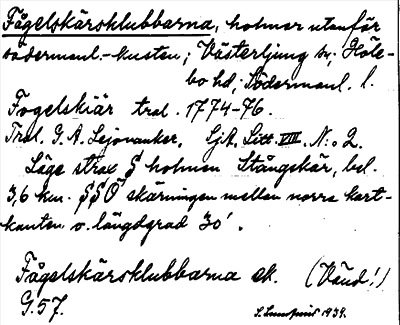 Fågelskärsklubbarna, holmar utanför
södermanl.-kusten; Västerljung sn; Höle-
bo hd; Södermanl. l.
Fogelskiär tral. 1774-76.
Tral. G. A. Lejonanker, SjA, Litt. VIII. N:o 2.
Läge strax S holmen Stångskär, bel.
3,6 km. SSO skärningen mellan norra kart-
kanten o. längdgrad 30'.
Fågelskärsklubbarna ek. (Vänd!)
G.57.
1939.